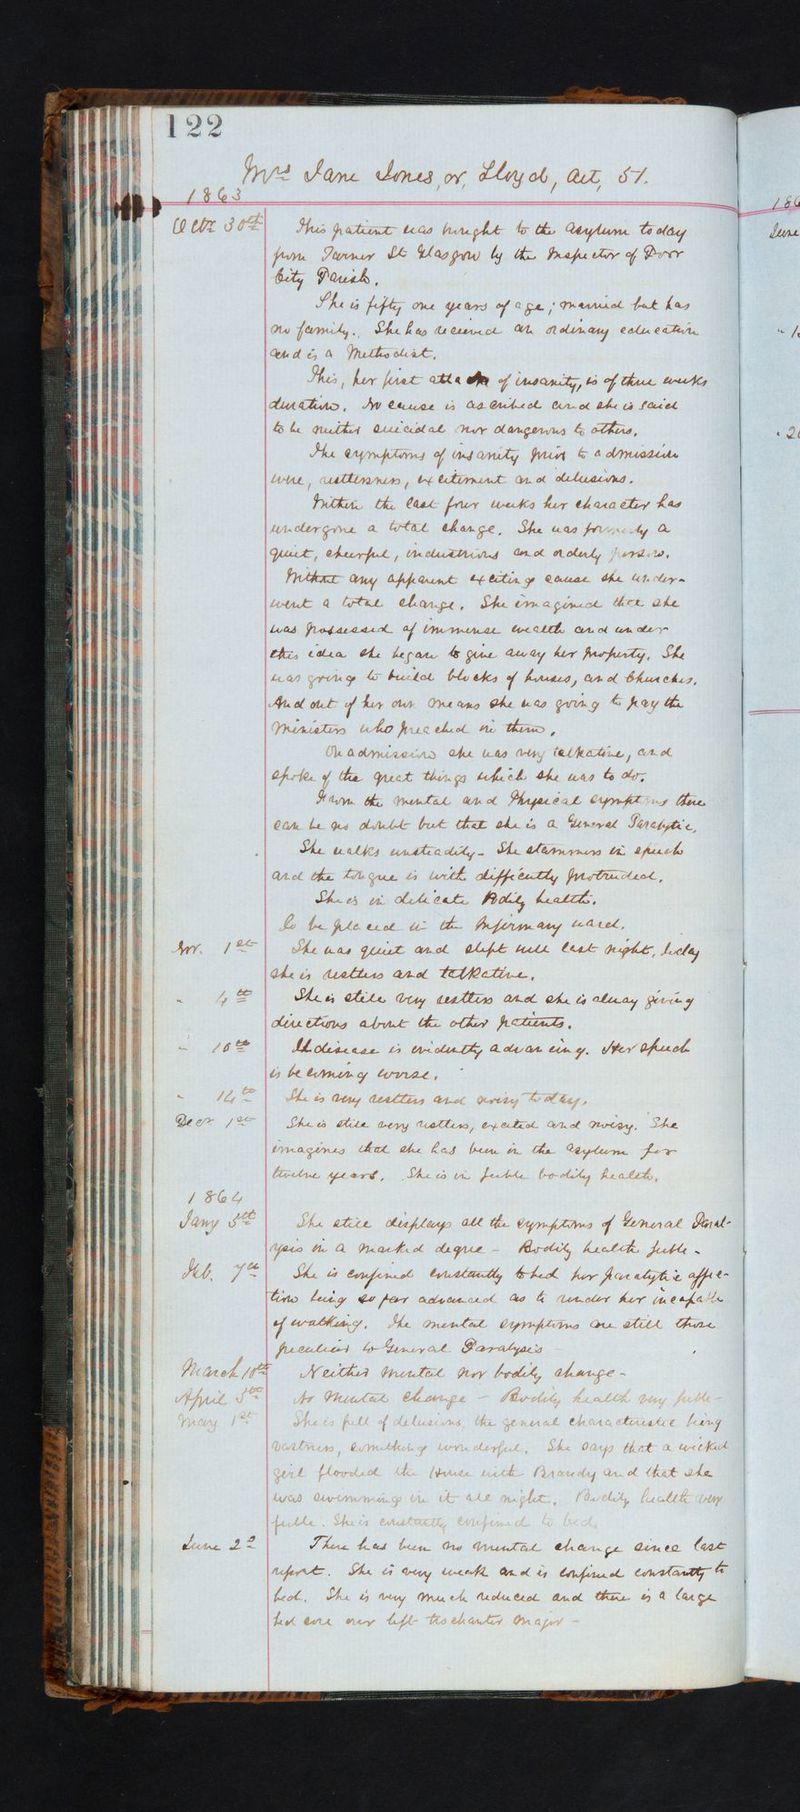 122
Mrs Jane Jones, or, Lloyd, aet, 51.
1863
Octr 30th This patient was brought to the asylum today
from Turner St Glasgow by the Inspector of Poor
City Parish.
She is fifty one years of age; married but has
no family. She has received an ordinary education
and is a Methodist.
This, her first attack of insanity, is of three weeks
duration. No cause is ascribed and she is said
to be neither suicidal nor dangerous to others.
The symptoms of insanity prior to admission
were, restlessness, excitement and delusions.
Within the last four weeks her character has
undergone a total change. She was formerly a
quiet, cheerful, industrious and orderly person.
Without any apparent exciting cause she under-
went a total change. She imagined that she
was possessed of immense wealth and under
this idea she began to give away her property. She
was going to build blocks of houses, and Churches.
And out of her own means she was going to pay the
ministers who preached in them.
On admission she was very talkative, and
spoke of the great things which she was to do.
From the mental and Physical symptoms there
can be no doubt but that she is a General Paralytic.
She walks unsteadily - She stammers in speech
and the tongue is with difficulty protruded.
She is in delicate Bodily health.
To be placed in the Infirmary ward.
Nov. 1st She was quiet and slept well last night, today
she is restless and talkative.
" 4th She is still very restless and she is alway giving
directions about the other patients.
" 10th The disease is evidently advancing. Her speech
is becoming worse.
" 14th She is very restless and noisy today.
Decr 1st She is still very restless, excited and noisy. She
imagines that she has been in the asylum for
twelve years. She is in feeble bodily health.
1864
Jany 5th She still displays all the symptoms of General Paral-
ysis in a marked degree - Bodily health feeble -
Feb. 7th She is confined constantly to bed her paralytic affec-
tion being so far advanced as to render her incapable
of walking. The mental symptoms are still those
peculiar to General Paralysis -
March 10th Neither mental nor bodily change -
April 5th No mental change - Bodily health very feeble -
May 1st She is full of delusions, the general characteristic being
vastness, something wonderful. She says that a wicked
girl flooded the House with Brandy and that she
was swimming in it all night. Bodily health very
feeble. She is constantly confined to bed.
June 2d There has been no mental change since last
report. She is very weak and is confined constantly to
bed. She is very much reduced and there is a large
bed sore over left trochanter major -
186
June